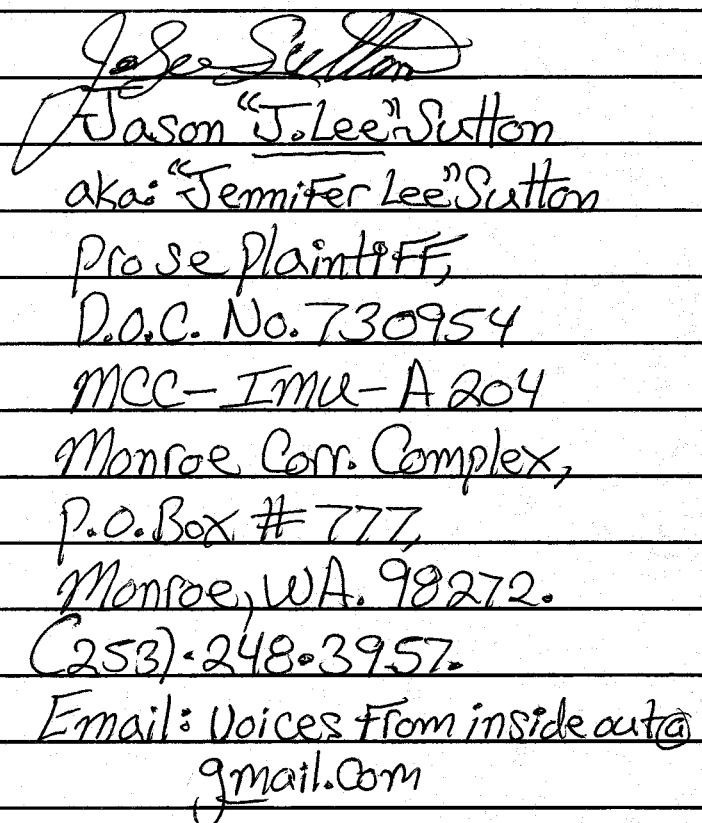 J. Lee Sutton
Jason "J. Lee" Sutton
aka: "Jennifer Lee" Sutton
Pro se Plaintiff,
D.O.C. No. 730954
MCC-IMU-A 204
Monroe Corr. Complex,
P.O. Box # 777,
Monroe, WA. 98272.
(253)•248•3957.
Email: Voices From inside out@
gmail.com